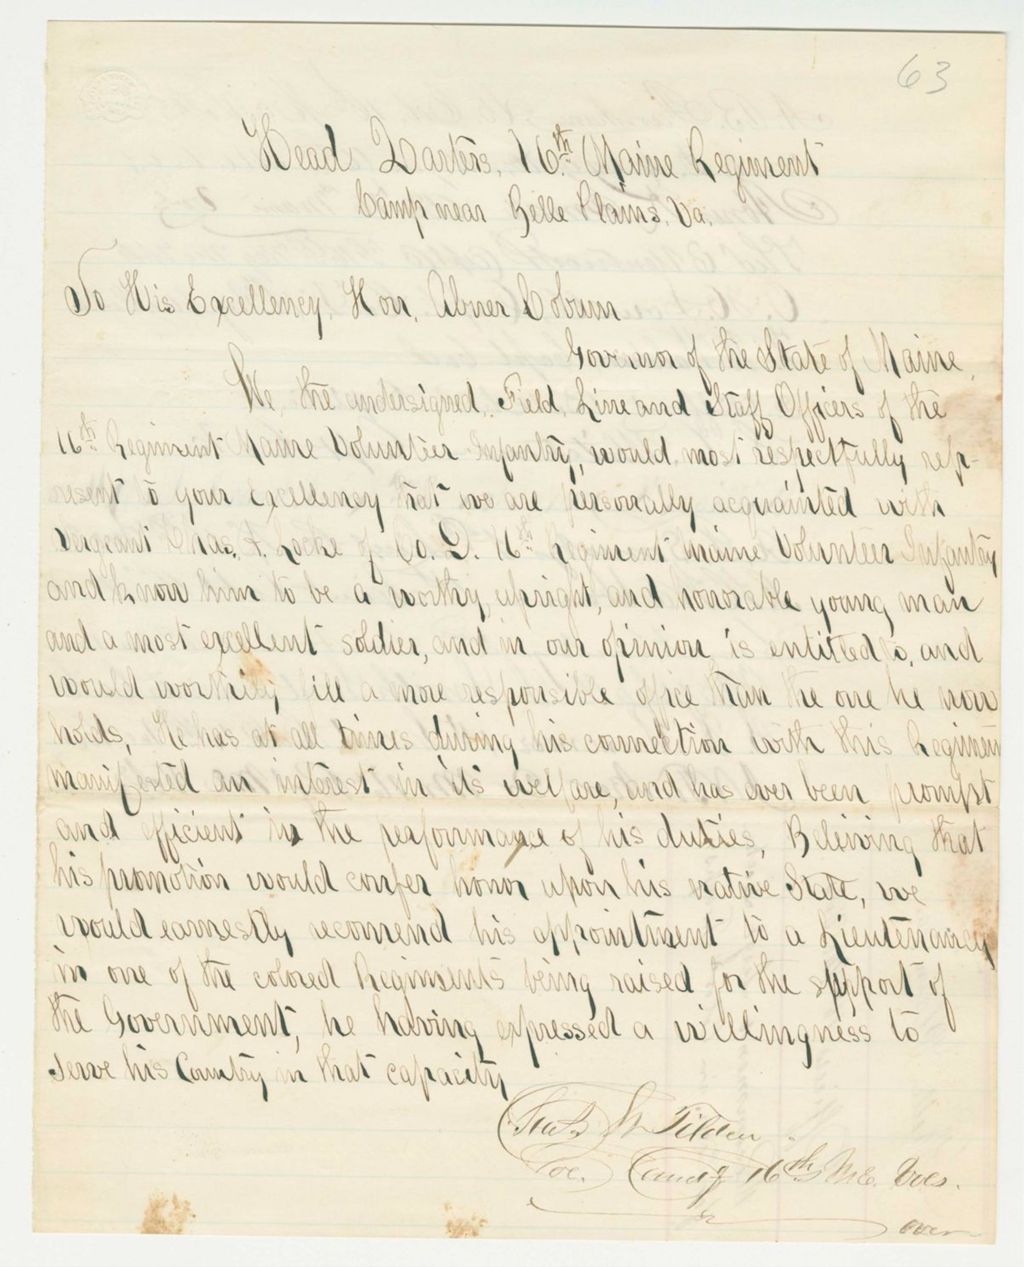 63
Head Quarters, 16th Maine Regiment
Camp near Belle Plains. Va.
To His Excellency, Hon. Abner Coburn
Governor of the State of Maine,
We, the undersigned, Field, Line and Staff Officers of the
16th Regiment Maine Volunteer Infantry, would most respectfully rep-
resent to your Excellency that we are personally acquainted with
Sergeant Chas. F. Locke of Co. D. 16th Regiment Maine Volunteer Infantry
and know him to be a worthy, upright, and honorable young man
and a most excellent soldier, and in our opinion, is entitled to, and
would worthily fill a more responsible office than the one he now
holds, He has at all times during his connection with this Regiment
manifested an interest in its welfare, and has ever been prompt
and efficient in the performance of his duties, Beleiving that
his promotion would confer honor upon his native State, we
would earnestly recomend his appointment to a Lieutenancy
in one of the colored Regiments being raised for the support of
the Government, he having expressed a willingness to
serve his Country in that capacity
Tilden
Col. Comdg 16th ME. Vols.
over